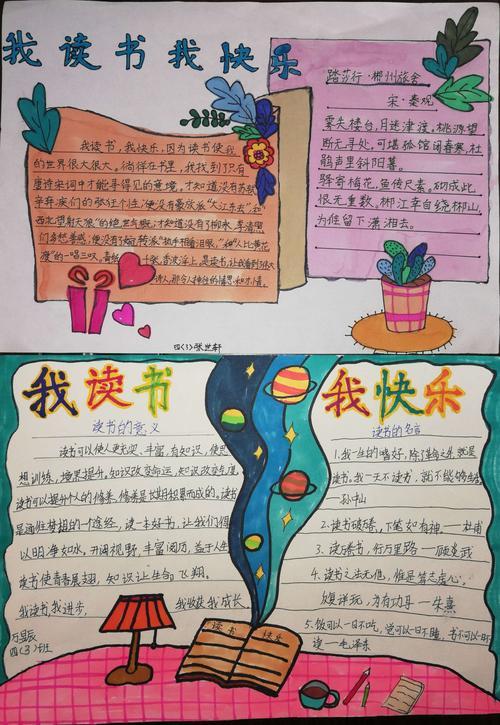 我读书我快乐
我读书,我快乐,因为读书使我
的世界很大很大。徜徉在书里,我找到了只有
唐诗宋词中才能寻得见的意境,才知道没有苏轼
辛弃疾们的张狂个性便没有豪放派“大江东去”和
西北望射天狼”的绝世气概;才知道没有了柳永、李清照
们多愁善感便没有了婉转派“执手相看泪眼,”和“人比黄花
瘦”的一唱三叹。
四(3)张世轩
踏莎行·郴州旅舍
宋·秦观
雾失楼台,月迷津渡,桃源望
断无寻处。可堪孤馆闭春寒,杜
鹃声里斜阳暮。
驿寄梅花,鱼传尺素。砌成此
恨无重数。郴江幸自绕郴山,
为谁留下潇湘去。
我读书
读书的意义
读书可以使人更充实,丰富,有知识,使思
想训练,境界提升。知识改变命运,知识改变生活
读书可以提升个人的修养,修养是长期积累而成的。读书
是通往梦想的一个途径,读一本好书,让我们得
以明净如水,开阔视野,丰富阅历,益于人生
读书使青春展翅,知识让生命飞翔。
我读书,我进步, 我收获我成长。
四(3)班
读书 快乐
我快乐
读书的名言
1.我一生的嗜好,除了革命之外,就是
读书。我一天不读书,就不能够生存
—孙中山
2.读书破万卷,下笔如有神。—杜甫
3.读万卷书,行万里路—顾炎武
4.读书之法无他,惟是笃志虚心,
反复详玩,为有功耳—朱熹
5.饭可以一日不吃,觉可以一日不睡,书不可以一日不
读—毛泽东